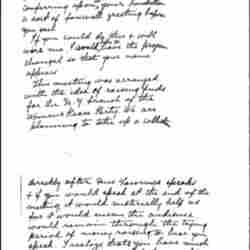 conferring upon your
a sort of farewell greeting before
you
If you could do this & will
wire me I would have the program
changed so that your name
appears
This meeting was arranged
with the idea of raising funds
for the N.Y. branch of the
Womans Peace Party. We are
planning to take up a collection
directly after
& if you would speak at the end of the
meeting it would materially help us
for it would mean the audience
would remain through the trying
period of money raising to hear you
speak. I realize that you have much